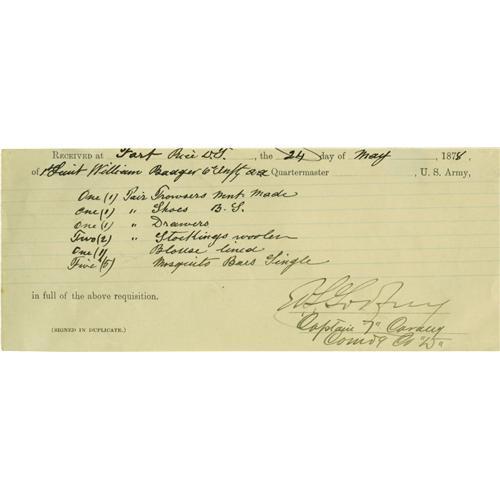 RECEIVED at Fort Rice D.T., the 24 day of May, 1878,
of 1 Lieut William Badger 6" Inft aa Quartermaster, U. S. Army,
One (1) Pair Trowsers mnt Made
One (1) " Shoes B. S.
One (1) " Drawers
Two (2) " Stockings woolen
One (1) Blouse lined
Five (5) Mosquito Bars Single
in full of the above requisition.
E S Godfrey
(SIGNED IN DUPLICATE.)
Captain 7" Cavalry
Comd'g Co "D"